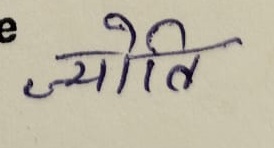 e
ज्योति